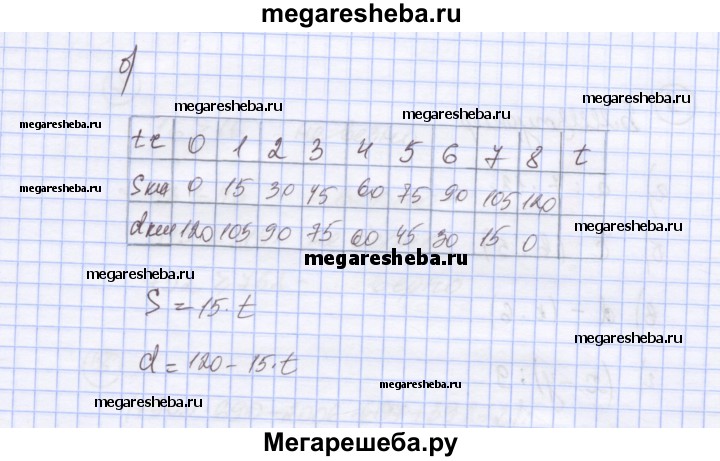 megaresheba.ru
б)
megaresheba.ru
megaresheba.ru
megaresheba.ru
megaresheba.ru
megaresheba.ru
t c 0 1 2 3 4 5 6 7 8 t
S км 0 15 30 45 60 75 90 105 120
d км 120 105 90 75 60 45 30 15 0
megaresheba.ru
megaresheba.ru
megaresheba.ru
S = 15·t
megaresheba.ru
d = 120 - 15·t
megaresheba.ru
megaresheba.ru
Мегарешеба.ру